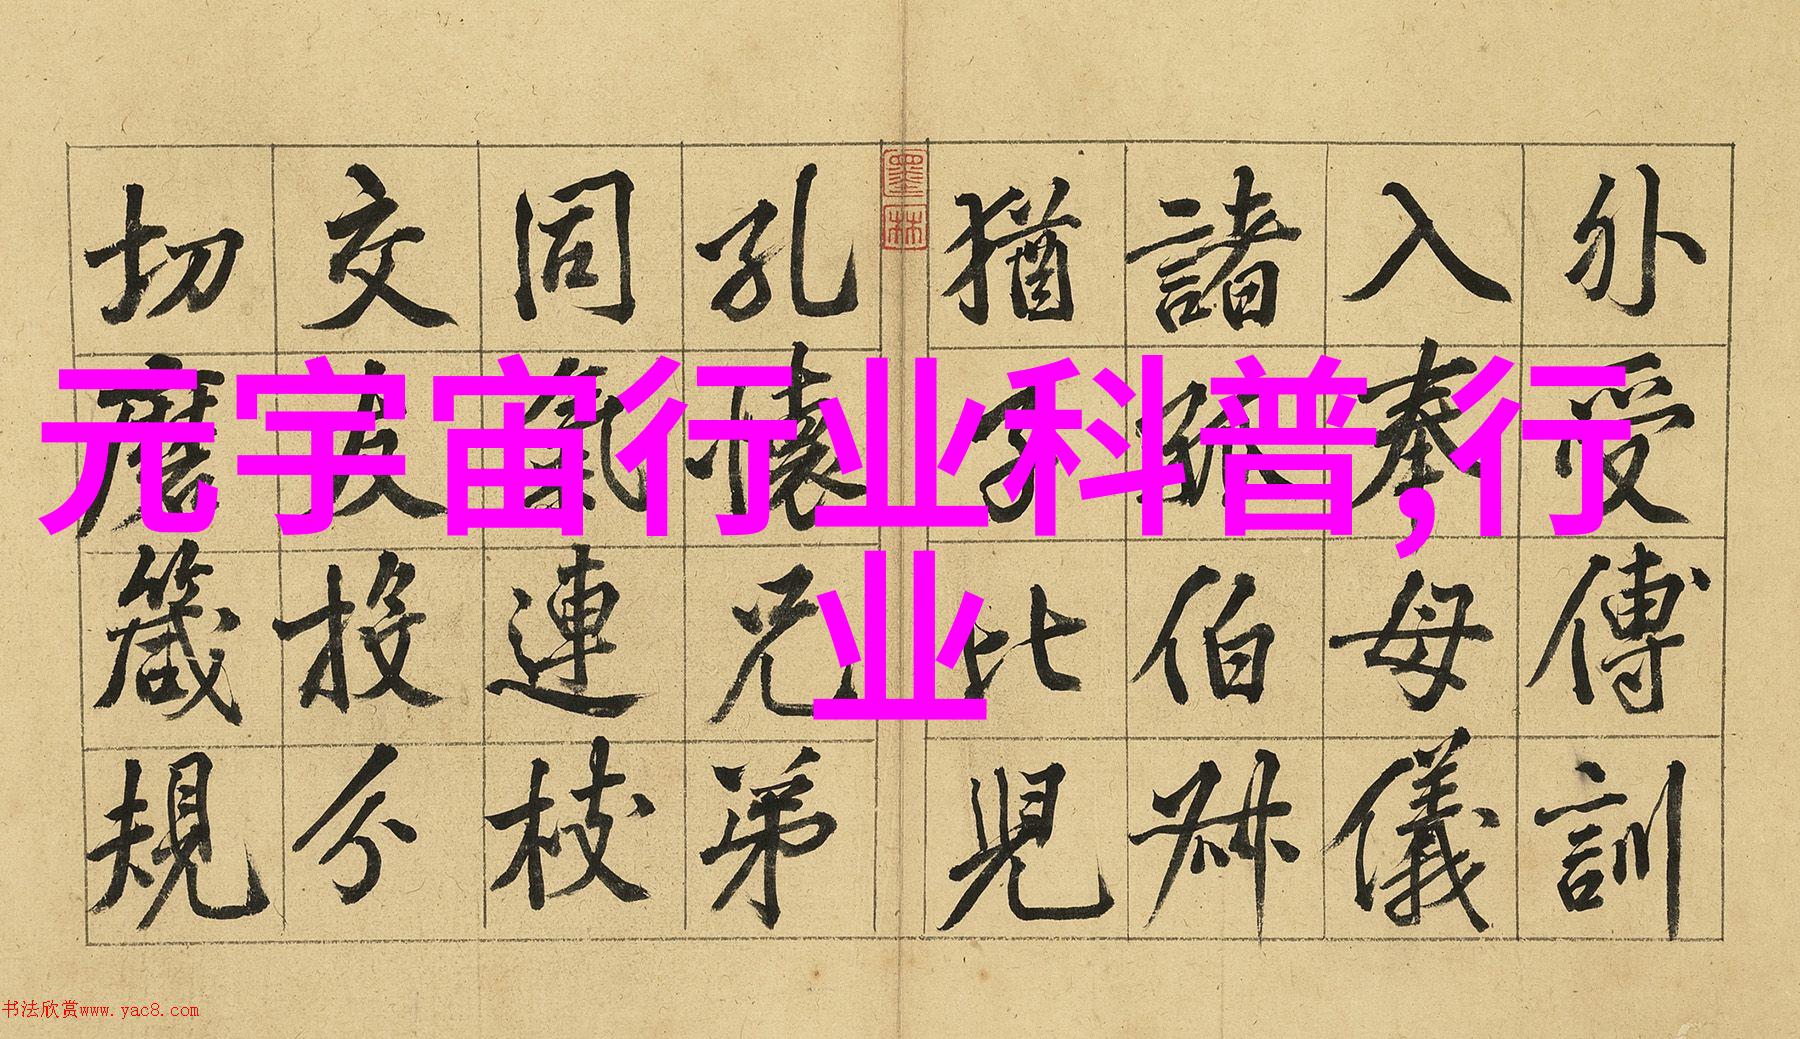 元宇宙行业科普,行
业
外受傅訓
入奉母儀
諸姑伯叔
猶子比兒
墨林
孔懷兄弟
同氣連枝
交友投分
切磨箴規
书法欣赏www.yac8.com